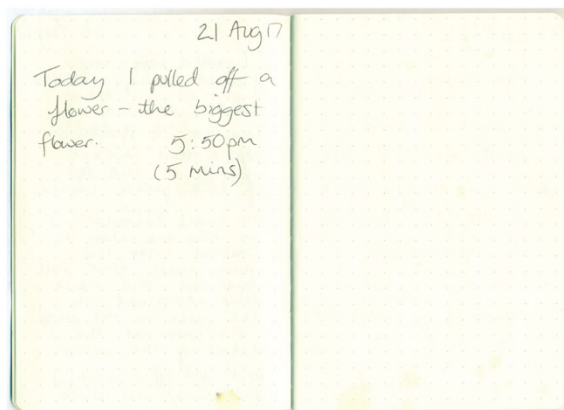 21 Aug 17
Today I pulled off a
flower - the biggest
flower. 5:50pm
(5 mins)